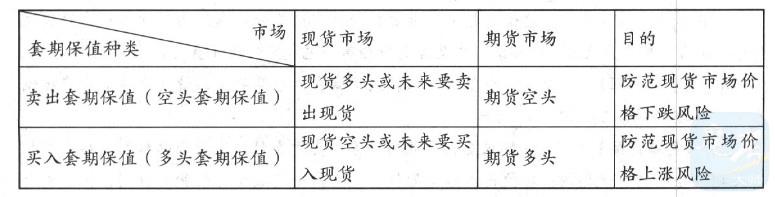 市场
套期保值种类
现货市场
期货市场
目的
卖出套期保值（空头套期保值）
现货多头或未来要卖
出现货
期货空头
防范现货市场价
格下跌风险
买入套期保值（多头套期保值）
现货空头或未来要买
入现货
期货多头
防范现货市场价
格上涨风险